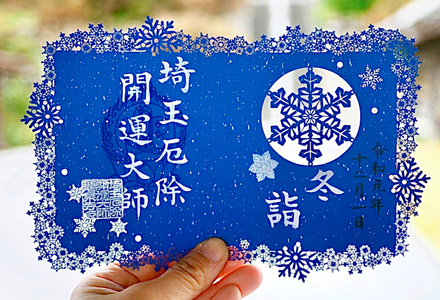 令和元年
十二月一日
冬
詣
埼玉厄除
開運大師